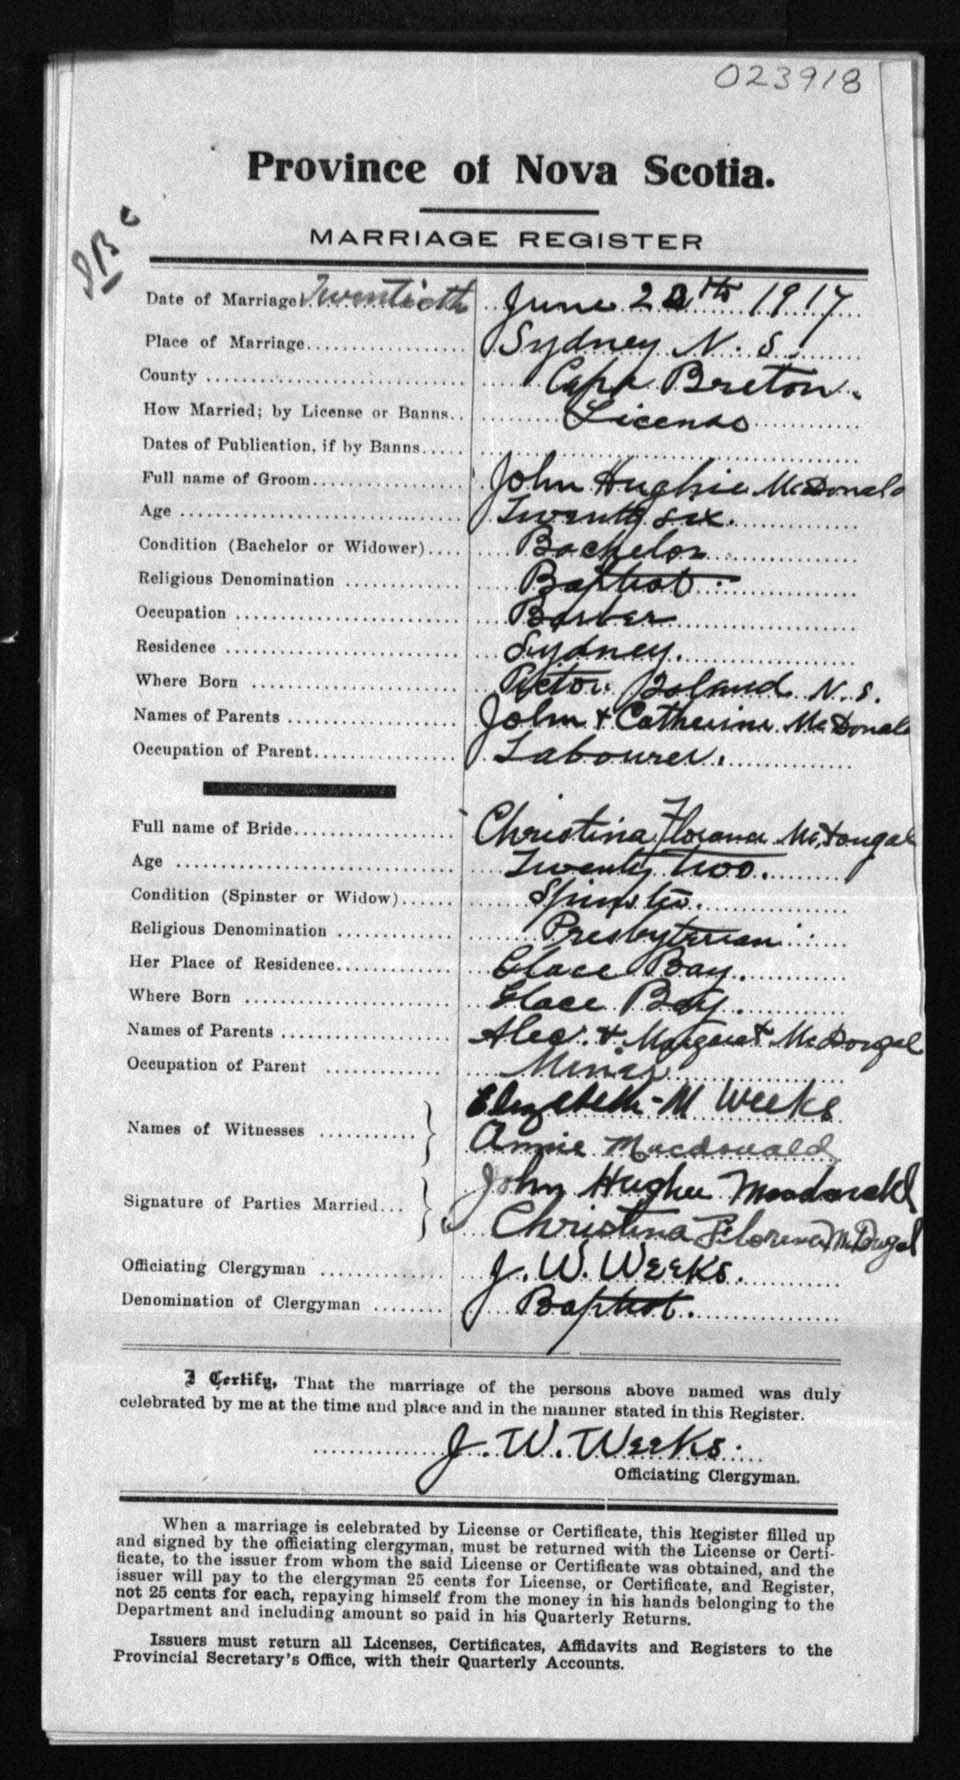 023918
Province of Nova Scotia.
MARRIAGE REGISTER
Date of Marriage Twentieth June 20th 1917
Place of Marriage Sydney N. S.
County Cape Breton.
How Married; by License or Banns License
Dates of Publication, if by Banns
Full name of Groom John Hughie McDonald
Age Twenty six.
Condition (Bachelor or Widower) Bachelor
Religious Denomination Baptist
Occupation Barber
Residence Sydney.
Where Born Pictou Island N. S.
Names of Parents John & Catherine McDonald
Occupation of Parent Labourer.
Full name of Bride Christina Florence McDougal
Age Twenty two.
Condition (Spinster or Widow) Spinster.
Religious Denomination Presbyterian
Her Place of Residence Glace Bay.
Where Born Glace Bay.
Names of Parents Alec. & Margaret McDougal
Occupation of Parent Miner
Names of Witnesses Elizabeth M Weeks
Annie Macdonald
Signature of Parties Married John Hughie Macdonald
Christina Florence McDougal
Officiating Clergyman J. W. Weeks.
Denomination of Clergyman Baptist.
I Certify, That the marriage of the persons above named was duly
celebrated by me at the time and place and in the manner stated in this Register.
J. W. Weeks.
Officiating Clergyman.
When a marriage is celebrated by License or Certificate, this Register filled up
and signed by the officiating clergyman, must be returned with the License or Certi-
ficate, to the issuer from whom the said License or Certificate was obtained, and the
issuer will pay to the clergyman 25 cents for License, or Certificate, and Register,
not 25 cents for each, repaying himself from the money in his hands belonging to the
Department and including amount so paid in his Quarterly Returns.
Issuers must return all Licenses, Certificates, Affidavits and Registers to the
Provincial Secretary's Office, with their Quarterly Accounts.